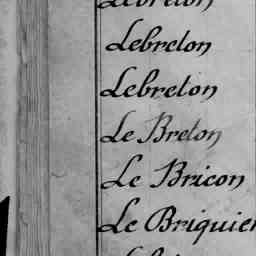 Lebreton
Lebreton
Lebreton
Le Breton
Le Bricon
Le Briquier